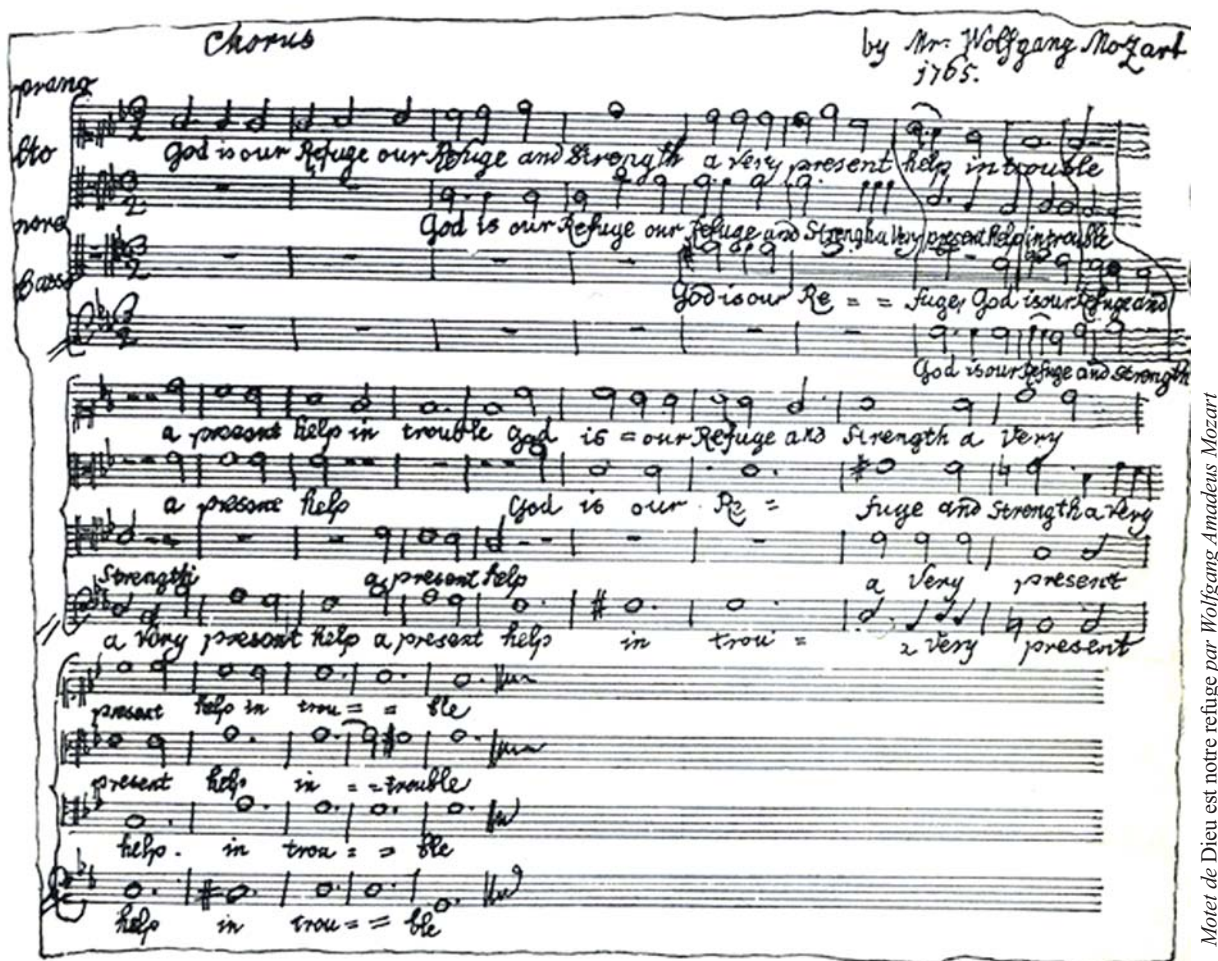 Chorus
by Mr. Wolfgang Mozart
1765.
prano
lto
nore
Basso
God is our Refuge our Refuge and Strength a Very present help in trouble
God is our Refuge our Refuge and Strength a Very present help in trouble
God is our Re = = fuge, God is our Refuge and
God is our Refuge and Strength
a present help in trouble God is = our Refuge and Strength a Very
a present help God is our Re = fuge and Strength a Very
Strength a present help a Very present
a Very present help a present help in trou = a Very present
present help in trou = = ble
present help in = = trouble
help. in trou = = ble
help in trou = = ble
Motet de Dieu est notre refuge par Wolfgang Amadeus Mozart